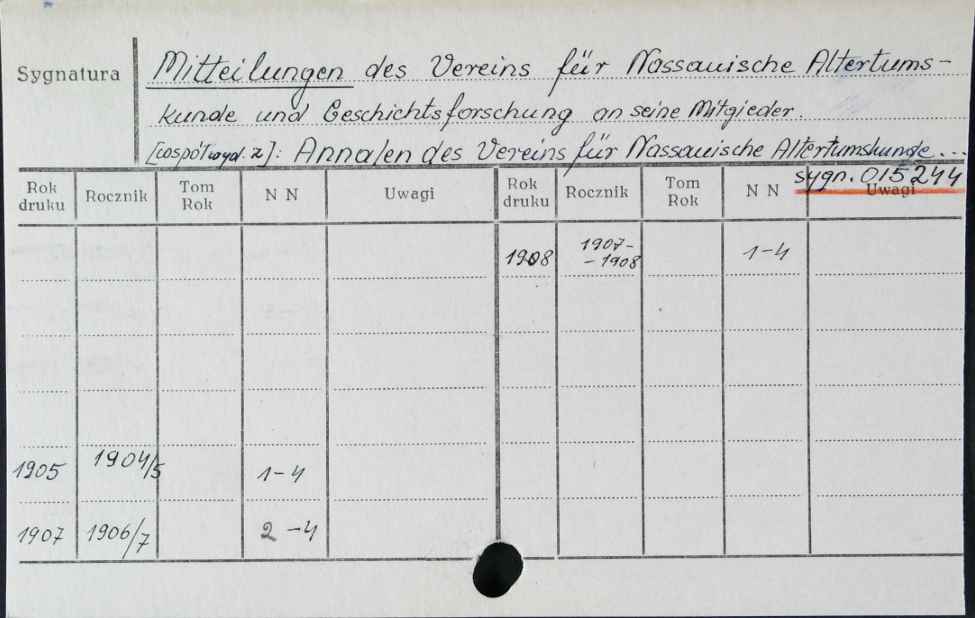 Sygnatura
Mitteilungen des Vereins für Nassauische Altertums-
kunde und Geschichtsforschung an seine Mitgieder.
[współwyd. z]: Annalen des Vereins für Nassauische Altertumskunde...
sygn. 015244
Rok druku Rocznik Tom Rok N N Uwagi Rok druku Rocznik Tom Rok N N Uwagi
1908 1907-
-1908 1-4
1905 1904/5 1-4
1907 1906/7 2-4